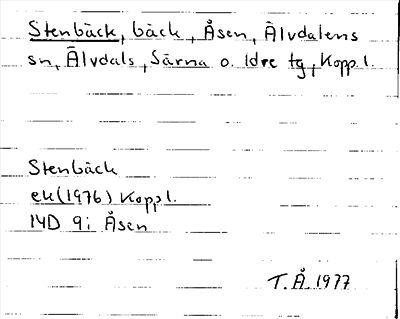 Stenbäck, bäck, Åsen, Älvdalens
sn, Älvdals, Särna o. Idre tg, Kopp.l.
Stenbäck
ek(1976) Kopp l.
14D 9i Åsen
T.Å. 1977